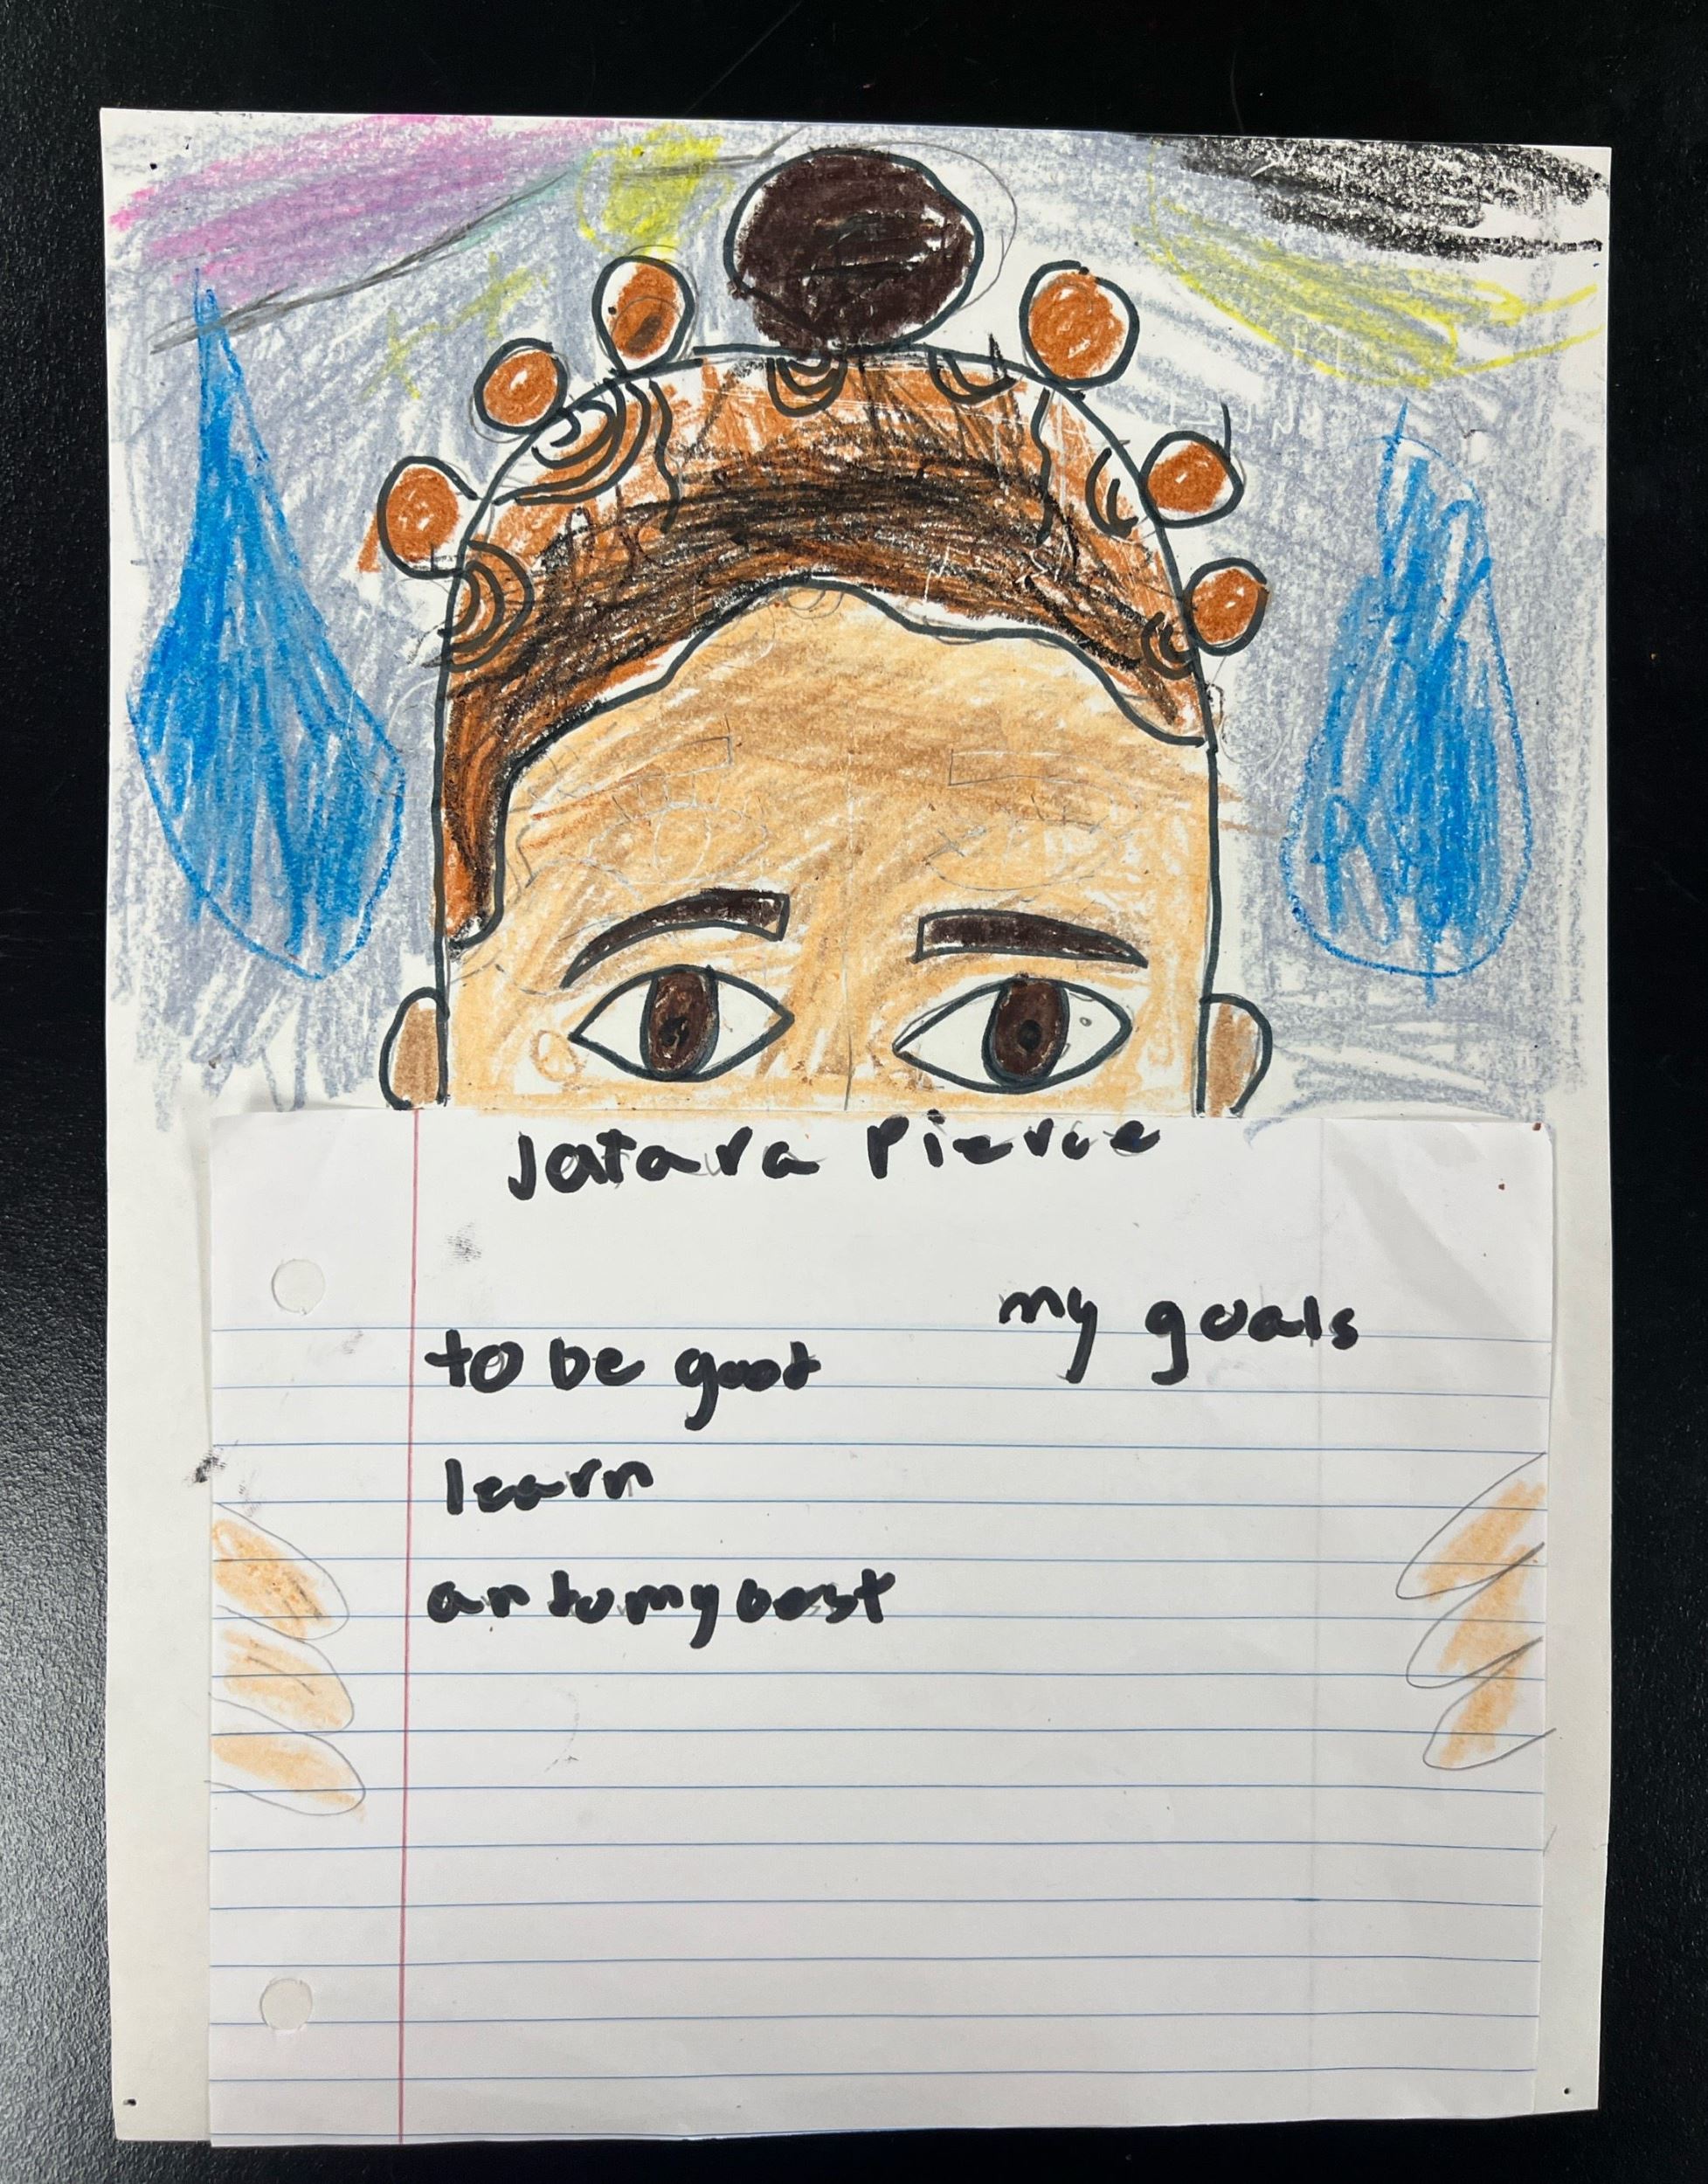 Jatara Pierce
my goals
to be good
learn
an to my best